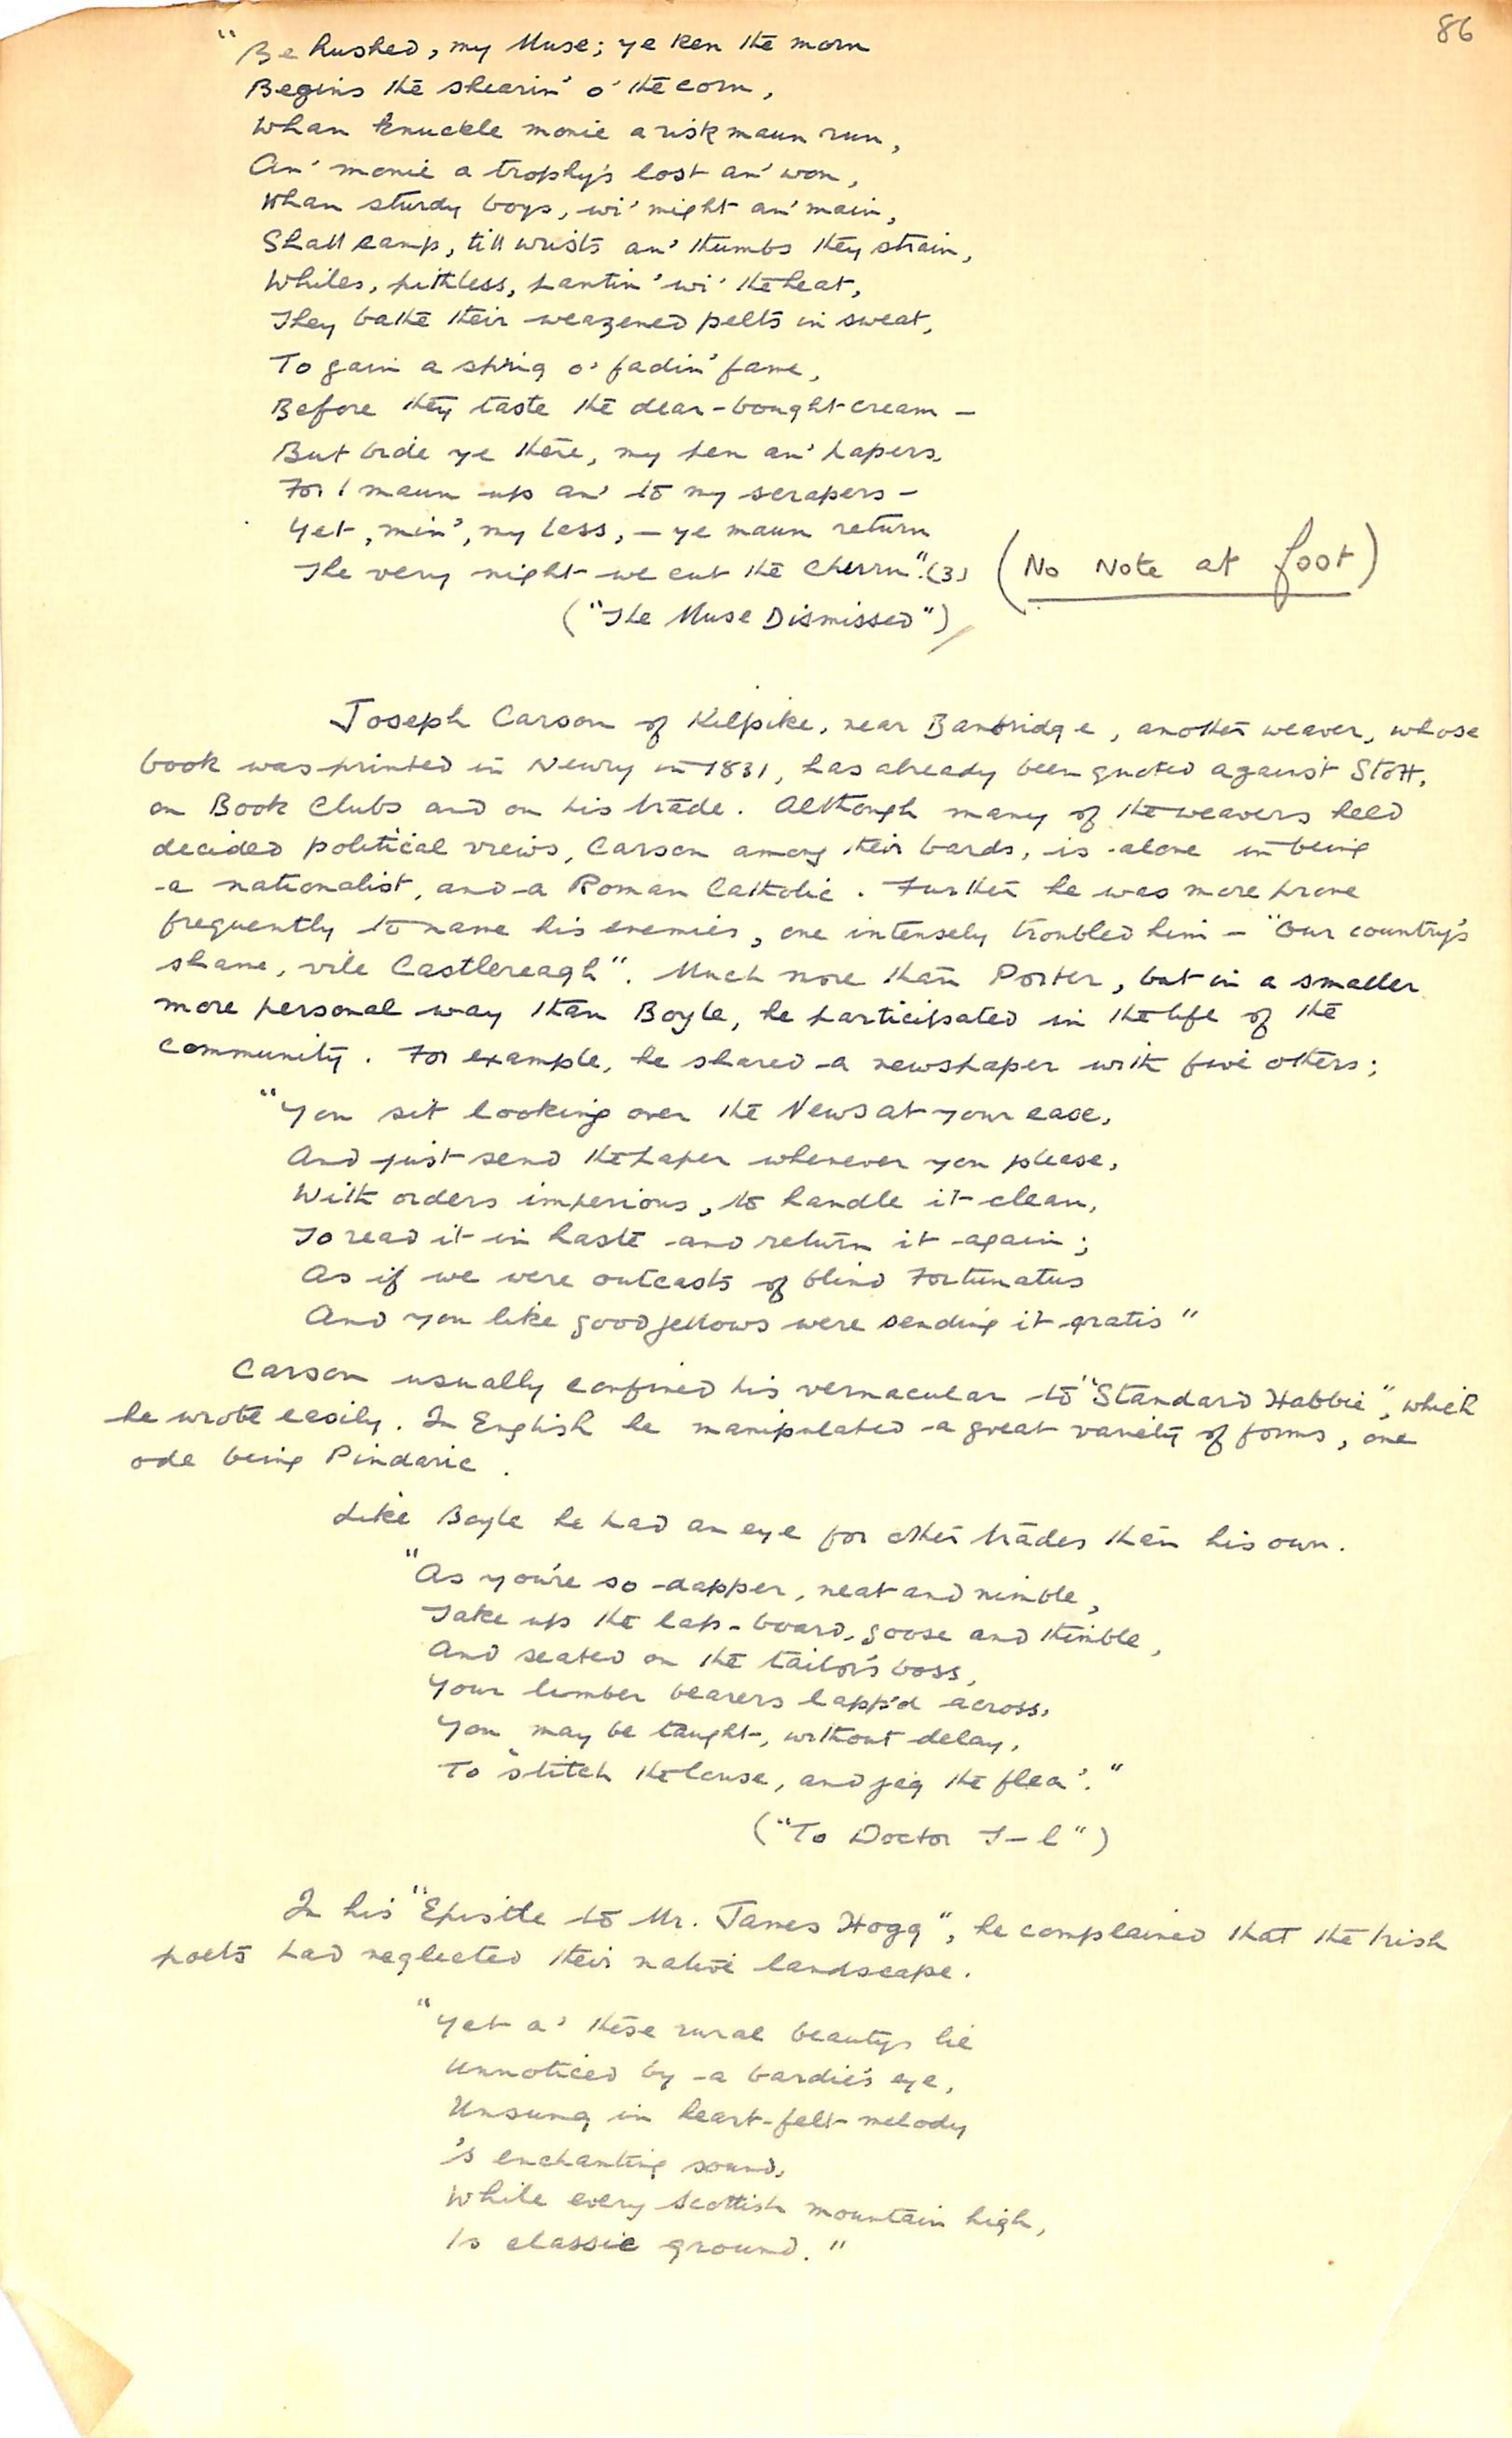 86
"Be hushed, my Muse; ye ken the morn
Begins the shearin' o' the corn,
Whan knuckle monie a risk maun run,
An' monie a trophy's lost an' won,
Whan sturdy boys, wi' might an' main,
Shall camp, till wrists an' thumbs they strain,
Whiles, pithless, pantin' wi' the heat,
They bathe their weazened pelts in sweat,
To gain a sprig o' fadin' fame,
Before they taste the dear-bought cream –
But bide ye there, my pen an' papers,
For I maun up an' to my scrapers –
Yet, min', my lass, – ye maun return
The very night we cut the Churn". (3) (No Note at foot)
("The Muse Dismissed")
Joseph Carson of Kilpike, near Banbridge, another weaver, whose
book was printed in Newry in 1831, has already been quoted against Stott,
on Book Clubs and on his trade. Although many of the weavers held
decided political views, Carson among their bards, is alone in being
a nationalist, and a Roman Catholic. Further he was more prone
frequently to name his enemies, one intensely troubled him – "Our country's
shame, vile Castlereagh". Much more than Porter, but in a smaller
more personal way than Boyle, he participated in the life of the
community. For example, he shared a newspaper with five others;
"You sit looking over the News at your ease,
And just send the paper whenever you please,
With orders imperious, to handle it clean,
To read it in haste and return it again;
As if we were outcasts of blind Fortunatus
And you like good fellows were sending it gratis"
Carson usually confined his vernacular to "Standard Habbie", which
he wrote easily. In English he manipulated a great variety of forms, one
ode being Pindaric.
Like Boyle he had an eye for other trades than his own.
"As you're so dapper, neat and nimble,
Take up the lap-board, goose and thimble,
And seated on the tailor's boss,
Your limber bearers lapp'd across,
You may be taught, without delay,
To 'stitch the louse, and jag the flea'."
("To Doctor T–l")
In his "Epistle to Mr. James Hogg", he complained that the Irish
poets had neglected their native landscape.
"Yet a' these rural beautys lie
Unnoticed by a bardie's eye,
Unsung in heart-felt melody
's enchanting sound,
While every Scottish mountain high,
Is classic ground."